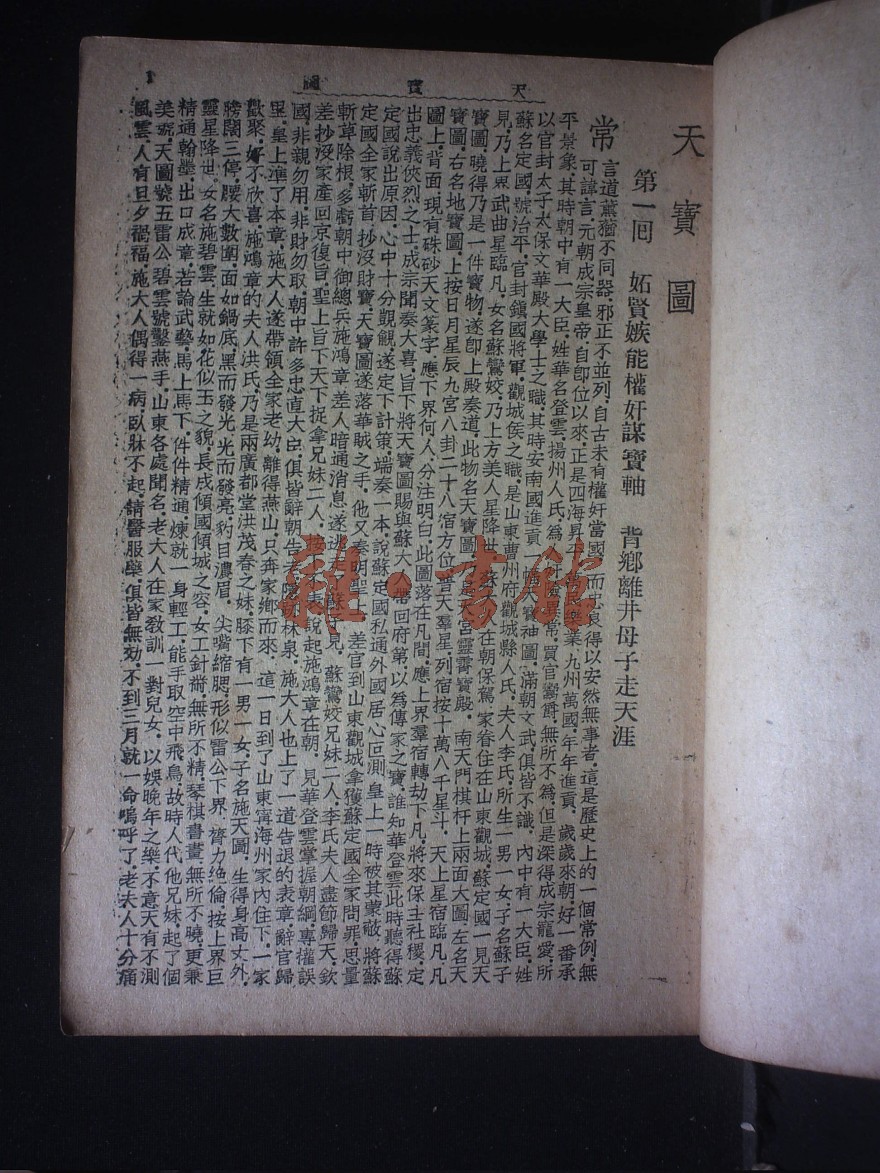 天寶圖
天寶圖
第一回　妬賢嫉能權奸謀寶軸　背鄉離井母子走天涯
常言道薰蕕不同器、邪正不並列、自古未有權奸當國、而忠良得以安然無事者、這是歷史上的一個常例、無
可諱言、元朝成宗皇帝、自卽位以來、正是四海昇平、樂業、九州萬國、年年進貢、歲歲來朝、好一番承
平景象、其時朝中有一大臣、姓華名登雲、揚州人氏、爲異常、買官鬻爵、無所不爲、但是深得成宗寵愛、所
以官封太子太保文華殿大學士之職、其時安南國進貢一寶神圖、滿朝文武、俱皆不識、內中有一大臣、姓
蘇名定國、號治平、官封鎭國將軍、觀城侯之職、是山東曹州府觀城縣人氏、夫人李氏、所生一男一女、子名蘇子
見、乃上界武曲星臨凡、女名蘇鸞姣、乃上方美人星降世、蘇在朝保駕、家眷住在山東觀城、蘇定國一見天
寶圖、曉得乃是一件寶物、遂卽上殿奏道、此物名天寶圖、乃是天宮靈霄寶殿、南天門棋杆上兩面大圖、左名天
寶圖、右名地寶圖、上按日月星辰九宮八卦二十八宿方位、普天羣星、列宿按十萬八千星斗、天上星宿臨凡、凡
圖上、背面現有硃砂天文篆字、應下界何人、分注明白、此圖落在凡間、應上界羣宿轉劫下凡、將來保主社稷、定
出忠義俠烈之士、成宗聞奏大喜、旨下將天寶圖賜與蘇大人帶回府第、以爲傳家之寶、誰知華登雲此時聽得蘇
定國說出原因、心中十分覬覦、遂定下計策、端奏一本、說蘇定國私通外國、居心叵測、皇上一時被其蒙蔽、將蘇
定國全家斬首、抄沒財寶、天寶圖遂落華賊之手、他又奏明聖上、差官到山東觀城拿獲蘇定國全家問罪、思量
斬草除根、多虧朝中御總兵施鴻章、差人暗通消息、遂逃了蘇子見、蘇鸞姣兄妹二人、李氏夫人盡節歸天、欽
差抄沒家產回京復旨、聖上旨下天下捉拿兄妹二人、按下不表、說起施鴻章在朝、見華登雲掌握朝綱、專權誤
國、非親勿用、非財勿取、朝中許多忠直大臣、俱皆辭朝告老、隱歸林泉、施大人也上了一道告退的表章、辭官歸
里、皇上準了本章、施大人遂帶領全家老幼、離得燕山、只奔家鄉而來、這一日到了山東寗海州家內住下、一家
歡聚、好不欣喜、施鴻章的夫人洪氏、乃是兩廣都堂洪茂春之妹、膝下有一男一女、子名施天圖、生得身高丈外、
膀闊三停、腰大數圍、面如鍋底、黑而發光、光而發亮、豹目濃眉、尖嘴縮腮、形似雷公下界、膂力絶倫、按上界巨
靈星降世、女名施碧雲、生就如花似玉之貌、長成傾國傾城之容、女工針黹、無所不精、琴棋書畫、無所不曉、更兼
精通翰墨、出口成章、若論武藝、馬上馬下、件件精通、煉就一身輕工、能手取空中飛鳥、故時人代他兄妹、起了個
美號、天圖號五雷公、碧雲號鑿燕手、山東各處聞名、老大人在家敎訓一對兒女、以娛晚年之樂、不意天有不測
風雲、人有旦夕禍福、施大人偶得一病、臥牀不起、請醫服藥、俱皆無効、不到三月就一命嗚呼了、老夫人十分痛
1
雜·書館